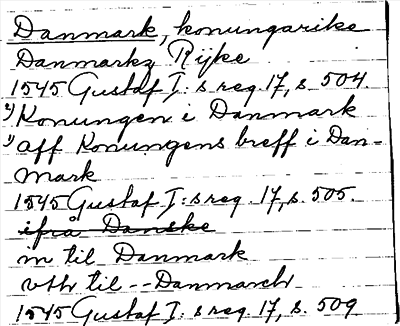 Danmark, konungarike
Danmarkz Rijke
1545 Gustaf I:s reg. 17, s. 504.
2) Konungen i Danmark
1) aff Konungens breff i Dan-
mark
1545 Gustaf I:s reg. 17, s. 505.
ifrå Danske
m til Danmark
vthr til -- Danmarch
1545 Gustaf I:s reg. 17, s. 509